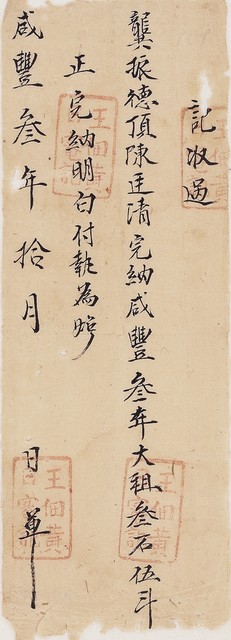 記收過
龔振德頂陳廷清完納咸豐叁年大租叁石伍斗
正完納明白付執為炤
咸豐叁年拾月　日單
王佃黃
王佃黃
王佃黃
王佃黃